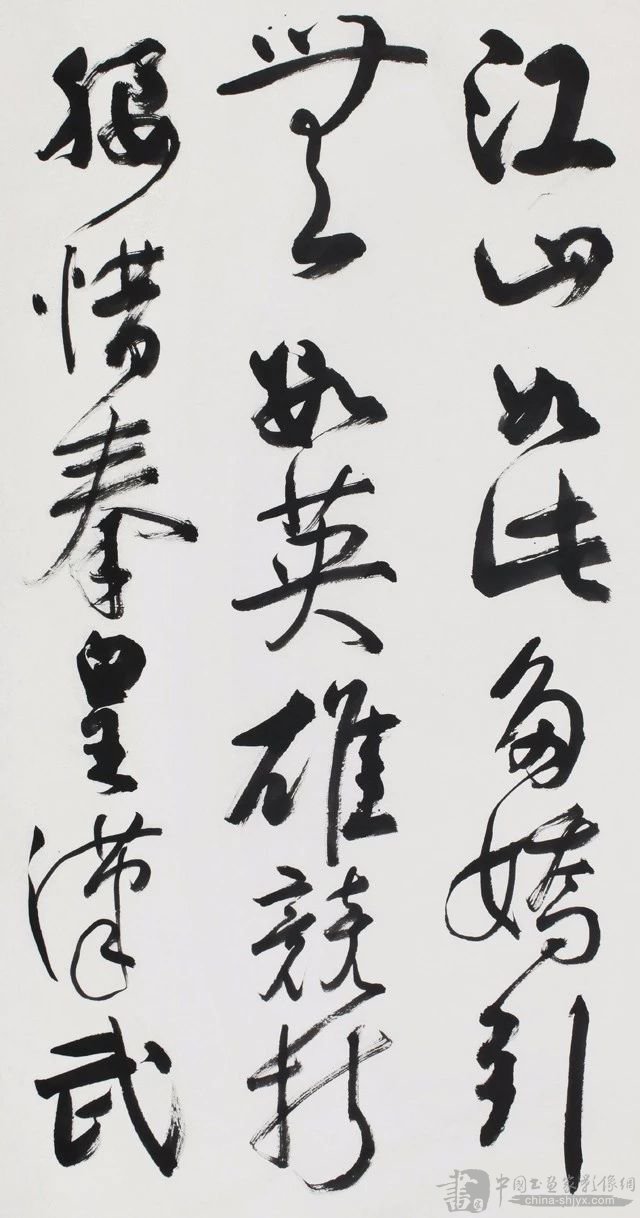 江山如此多嬌引
無數英雄競折
腰惜秦皇漢武
書 中国书画家影像網
china-shjyx.com